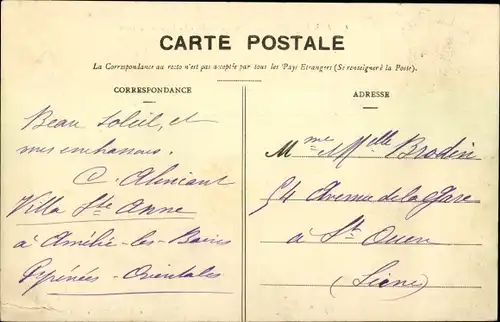 CARTE POSTALE
La Correspondance au recto n'est pas acceptée par tous les Pays Etrangers (Se renseigner à la Poste).
CORRESPONDANCE
Beau Soleil, et
mes
C.
Villa Ste Anne
à Amélie-les-Bains
Pyrénées-Orientales
ADRESSE
Mme Melle Brodin
54 Avenue de la Gare
à St Ouen
(Seine)